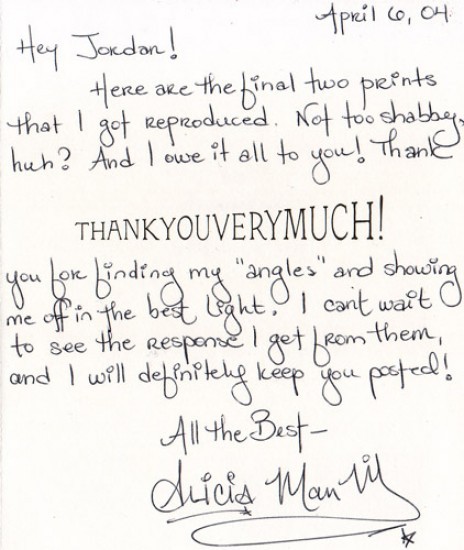 April 6, 04
Hey Jordan!
Here are the final two prints
that I got reproduced. Not too shabbey,
huh? And I owe it all to you! Thank
THANKYOUVERYMUCH!
you for finding my "angles" and showing
me off in the best light. I can't wait
to see the response I get from them,
and I will definitely keep you posted!
All the Best-
Alicia